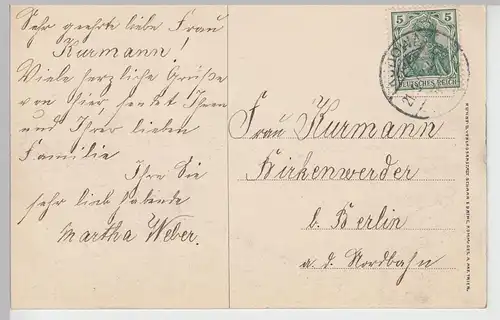 Sehr geehrte liebe Frau
Kurmann!
Viele herzliche Grüße
von hier, sendet Ihnen
und Ihrer lieben
Familie
Ihre Sie
sehr lieb habende
Martha Weber.
5 5
DEUTSCHES REICH
Frau Kurmann
Birkenwerder
b. Berlin
a. d. Nordbahn